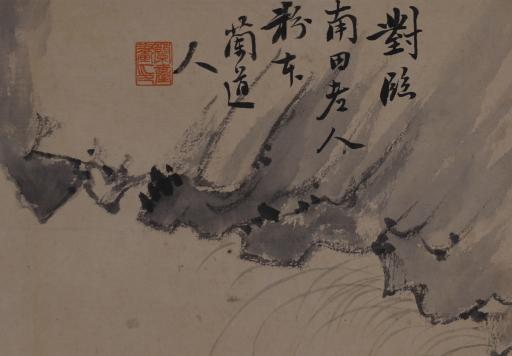 對臨
南田老人
粉本
蘭道
人